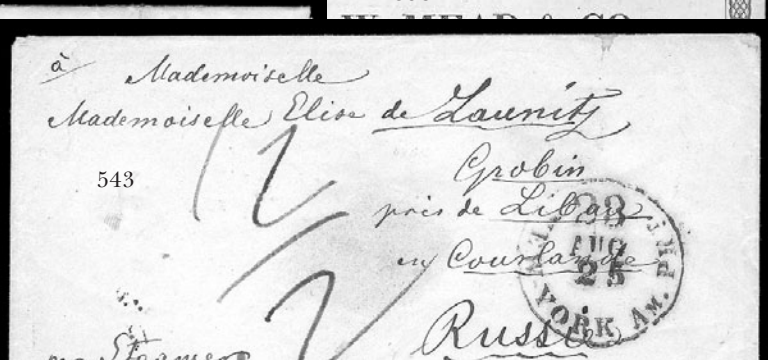 W. MEAD & CO
à Mademoiselle
Mademoiselle Elise de Launitz
Grobin
543
près de Libau
en Courlande
Russie
28
AUG
25
YORK AM. PKT
Steamer